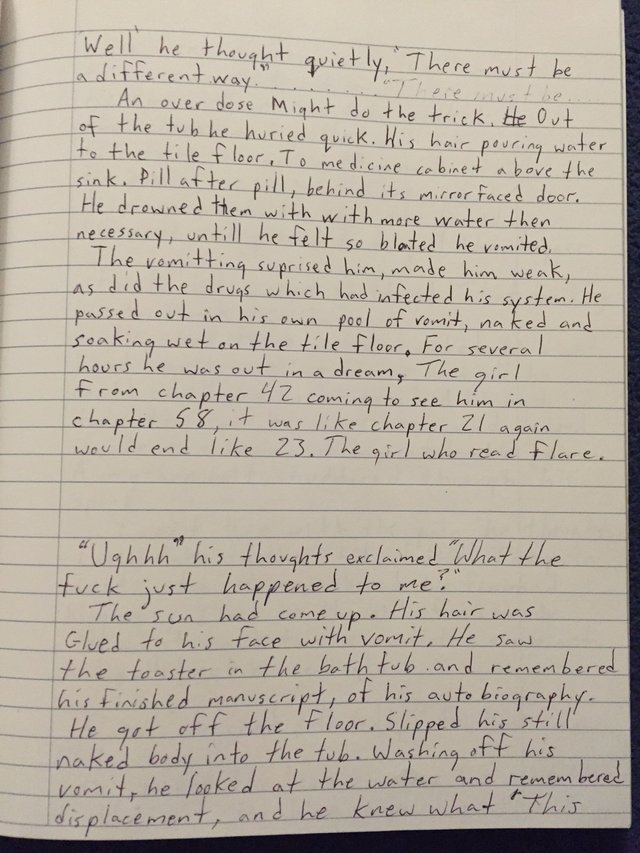 Well" he thought quietly, "There must be
a different way." . . . . . . . . . "There must be...
An over dose Might do the trick. He Out
of the tub he huried quick. His hair pouring water
to the tile floor. To medicine cabinet above the
sink. Pill after pill, behind its mirror faced door.
He drowned them with with more water then
necessary, untill he felt so bloated he vomited.
The vomitting suprised him, made him weak,
as did the drugs which had infected his system. He
passed out in his own pool of vomit, naked and
soaking wet on the tile floor. For several
hours he was out in a dream, The girl
from chapter 42 coming to see him in
chapter 58, it was like chapter 21 again
would end like 23. The girl who read flare.
"Ughhh" his thoughts exclaimed "What the
fuck just happened to me?"
The sun had come up. His hair was
Glued to his face with vomit. He saw
the toaster in the bath tub. and remembered
his finished manuscript, of his auto biography.
He got off the floor. Slipped his still
naked body into the tub. Washing off his
vomit, he looked at the water and remembered
displacement, and he knew what "This